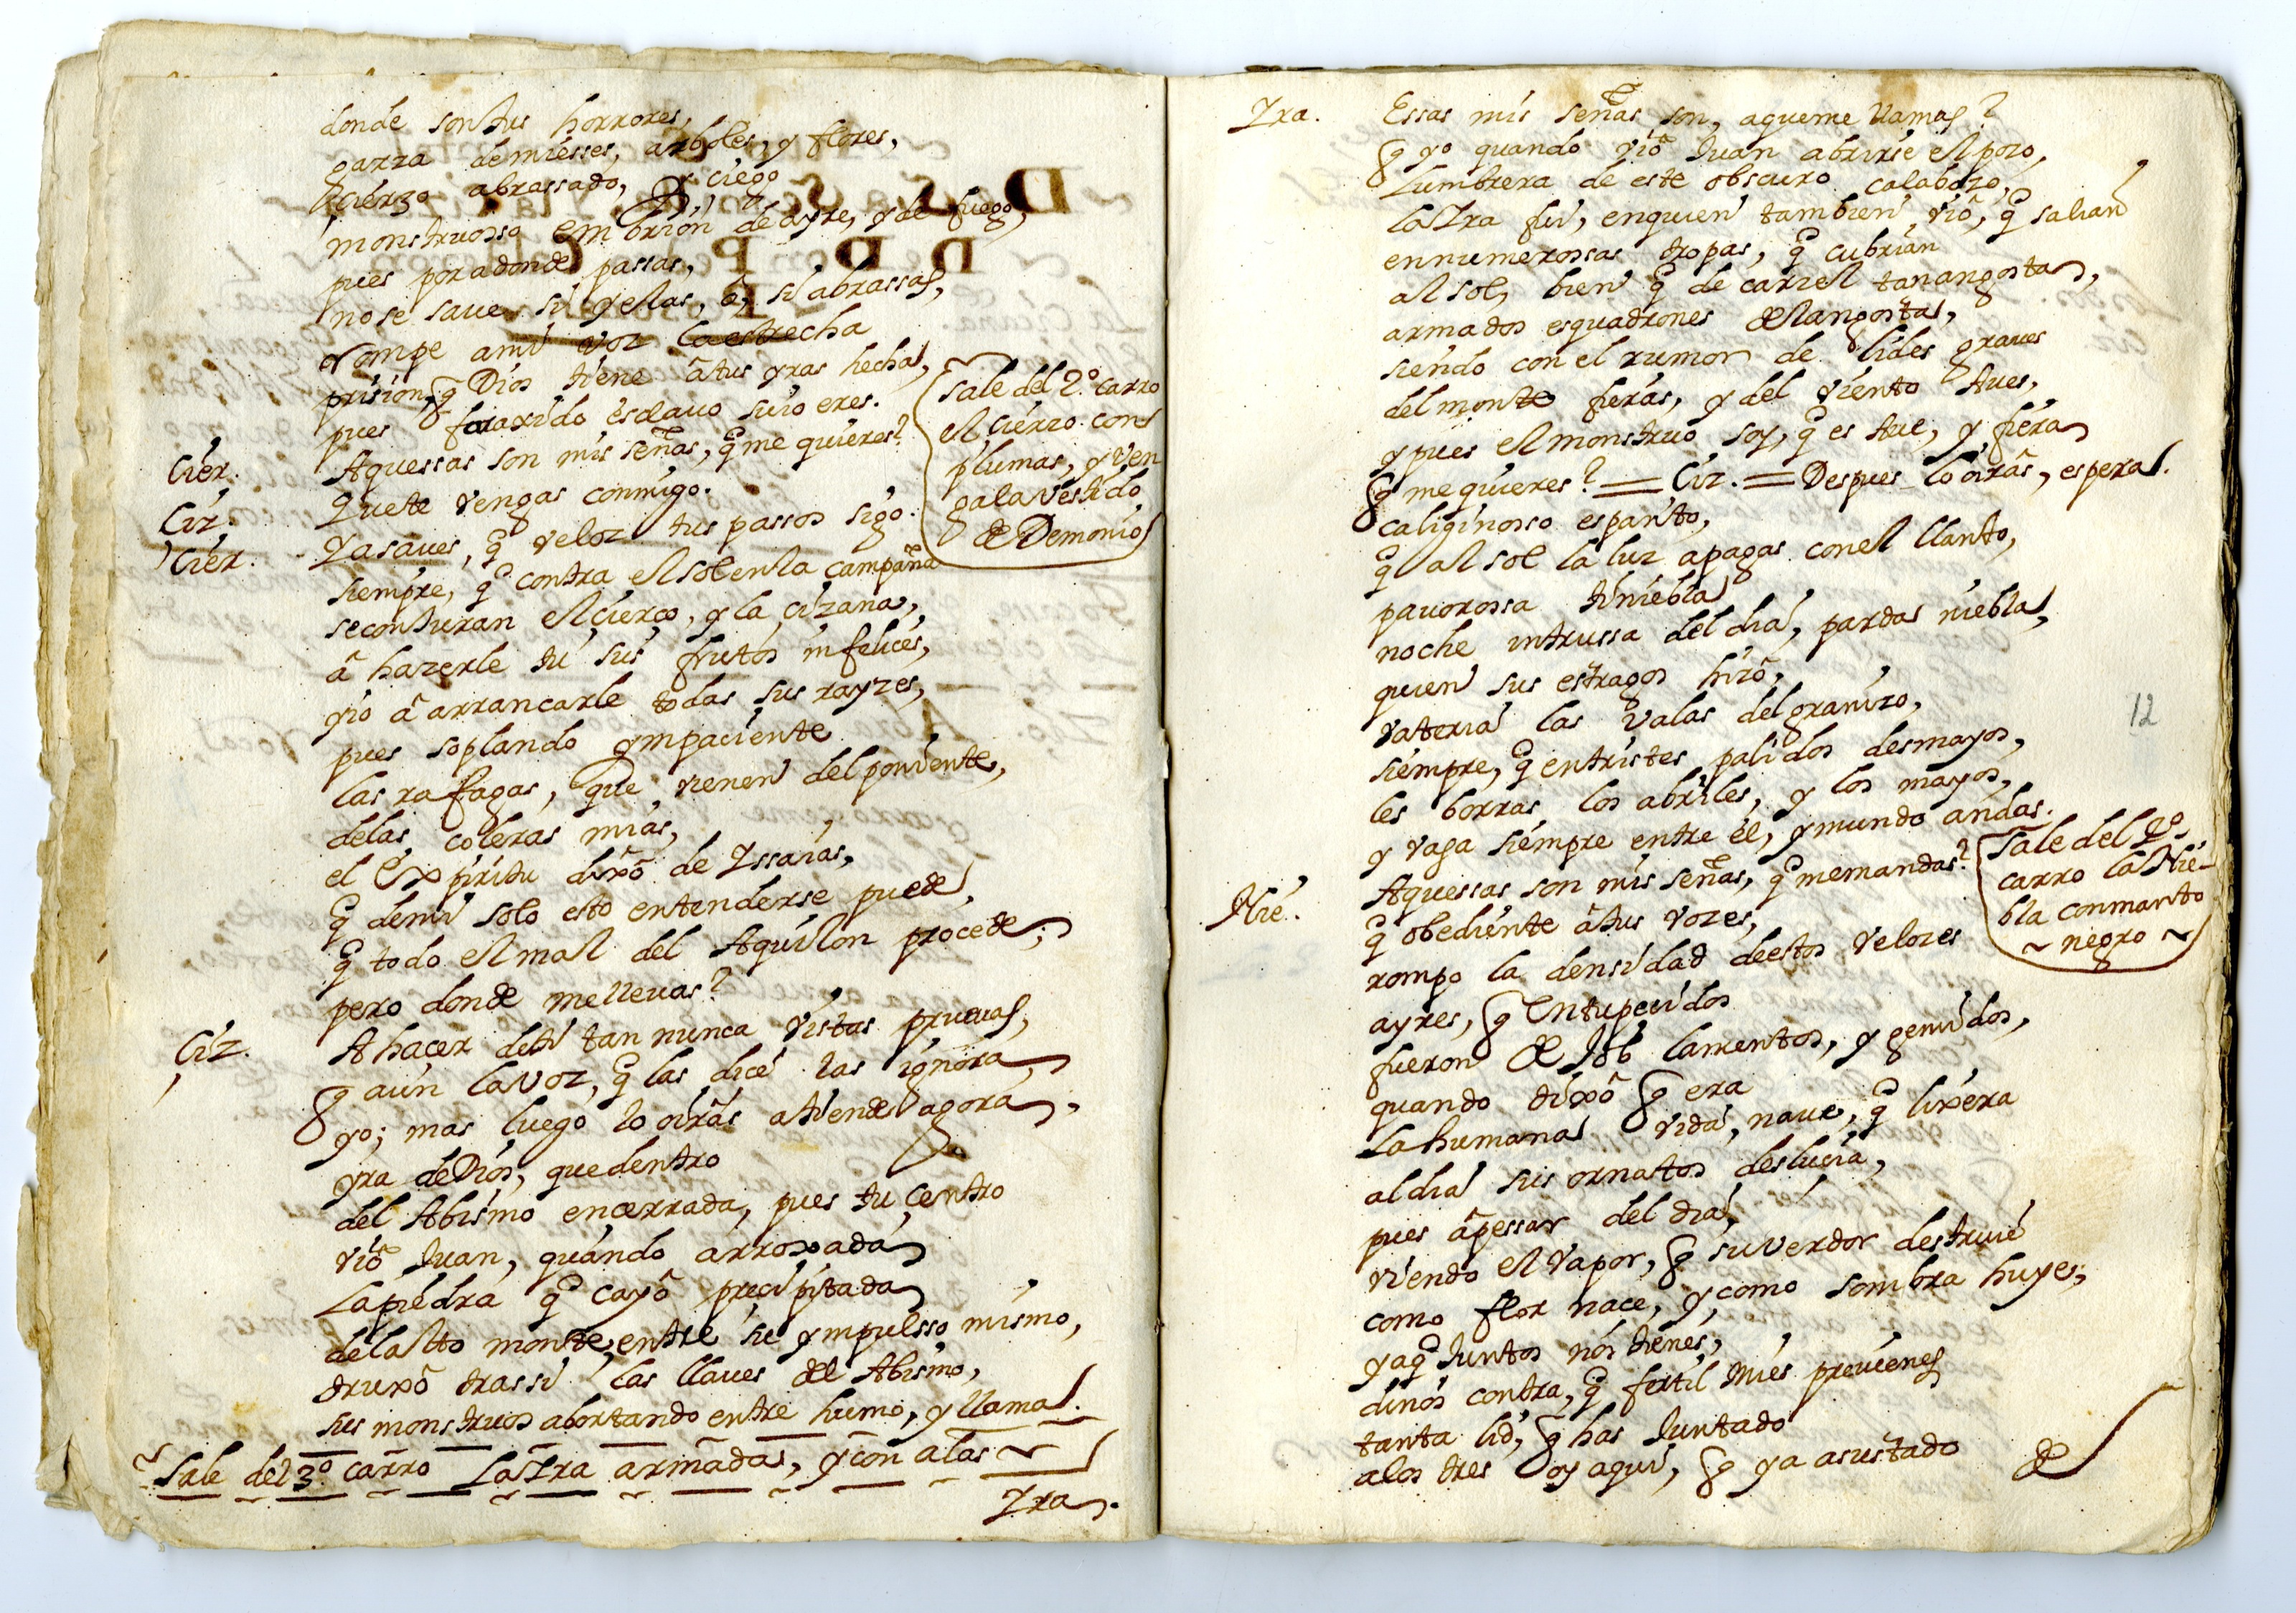 donde son tus horrores,
garza de miesses, arboles, y flores,
Cierzo abrassado, y ciego
monstruosso embrion de ayre, y de fuego,
pues por adonde passas,
no se save si yelas, ô, si abrassas,
rompe a mi voz la estrecha
prision, q̃ Dios tiene â tus yras hecha,
pues foraxido esclavo suio eres.
Cier. Aquessas son mis señas, q̃ me quieres?
Sale del 2.º carro
el Cierzo con
plumas, y ven
gala vestido
de Demonio
Ciz. Que te vengas conmigo.
Cier. Ya saves, q̃ veloz tus passos sigo.
siempre, q̃ contra el sol en la campaña
se conjuran el cierço, y la çizana,
â hazerle tú sus frutos infelices,
yio â arrancarle todas sus rayzes,
pues soplando ympaciente
las rafagas, que vienen del poniente,
de las coleras mias,
el Expiritu dixô de Yssaias,
q̃ de mi solo esto entenderse puede,
q̃ todo el mal del Aquilon procede;
pero donde me llevas?
Ciz. A hacer de ti tan nunca vistas pruevas,
q̃ aun la voz, q̃ las dice las ignora,
yo; mas luego lo oirâs atiende agora,
yra de Dios, que dentro
del Abismo encerrada, pues tu centro
viô Juan, quando arroxada
la piedra q̃ cayô precipitada
del alto monte, entre su ympulsso mismo,
truxô tras si las llaves del Abismo,
sus monstruos abortando entre humo, y llama.
Sale del 3.º carro La Yra armada, y con alas
Yra.
Yra. Essas mis señas son, a que me llamas?
q̃ yo quando viô Juan abrirse el pozo,
Lumbrera de este obscuro calabozo,
la Yra fui, en quien tambien viô, q̃ salian
en numerossas tropas, q̃ cubrian
al sol, bien q̃ de carzel tan angosta,
armados esquadrones de langosta,
siendo con el rumor de lides graves
del monte fieras, y del viento Aves,
y pues el monstruo soy, q̃ es Ave, y fiera
q̃ me quieres? = Ciz. = Despues lo oirâs, espera.
caliginosso espanto,
q̃ al sol la luz apagas con el llanto,
pavorossa tiniebla
noche intrussa del dia, parda niebla,
quien sus estragos hizô,
vateria las valas del granizo,
siempre, q̃ en tristes palidos desmayos,
les borras los abriles, y los mayos,
y vaga siempre entre él, y mundo andas.
Sale del 2º
carro la Nie-
bla con manto
~ negro ~
Nie. Aquessas son mis señas, q̃ me mandas?
q̃ obediente â tus vozes,
rompo la densidad de estos velozes
ayres, q̃ Entupecidos
fueron de Job lamentos, y gemidos,
quando dixô q̃ era
la humana vida, nave, q̃ lixera
al dia sus ornatos deslucia,
pues â pessar del dia,
viendo el vapor, q̃ su verdor destruie
como flor nace, y como sombra huye;
ya q̃ Juntos nos tienes,
dinos contra, q̃ fertil Mies previenes
tanta lid, q̃ has Juntado
a los tres oy aqui, q̃ ya asustado
de
12